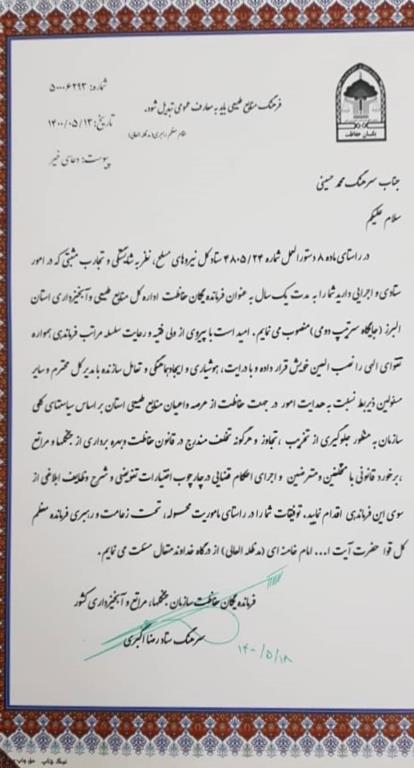 فرهنگ منابع طبیعی باید به معارف عمومی تبدیل شود.
مقام معظم رهبری (مدظله العالی)
شماره: ۵۰۰۰۶۲۹۳
تاریخ: ۱۴۰۰/۰۵/۱۳
پیوست: دعای خیر
یگان حفاظت
جناب سرهنگ محمد حسینی
سلام علیکم
در راستای ماده ۸ دستورالعمل شماره ۴۸۰۵/۲۴ ستاد کل نیروهای مسلح، نظر به شایستگی و تجارب مثبتی که در امور
ستادی و اجرایی دارید شما را به مدت یک سال به عنوان فرمانده یگان حفاظت اداره کل منابع طبیعی و آبخیزداری استان
البرز (جایگاه سرتیپ دومی) منصوب می نمایم. امید است با پیروی از ولی فقیه و رعایت سلسله مراتب فرماندهی همواره
تقوای الهی را نصب العین خویش قرار داده و با درایت، هوشیاری و ایجاد هماهنگی و تعامل سازنده با مدیر کل محترم و سایر
مسئولین ذیربط نسبت به هدایت امور در جهت حفاظت از عرصه و اعیان منابع طبیعی استان بر اساس سیاستهای کلی
سازمان به منظور جلوگیری از تخریب، تجاوز و هرگونه تخلف مندرج در قانون حفاظت و بهره برداری از جنگلها و مراتع
، برخورد قانونی با متخلفین و متعرضین و اجرای احکام قضایی در چارچوب اختیارات تفویضی و شرح وظایف ابلاغی از
سوی این فرماندهی اقدام نمایید. توفیقات شما را در راستای ماموریت محوله، تحت زعامت و رهبری فرمانده معظم
کل قوا حضرت آیت ا... امام خامنه ای (مدظله العالی) از درگاه خداوند متعال مسئلت می نمایم.
فرمانده یگان حفاظت سازمان جنگلها، مراتع و آبخیزداری کشور
سرهنگ ستاد رضا اکبری
۱۴۰۰/۵/۱۸